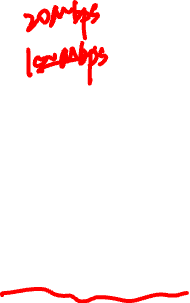 20Mbps
100Mbps